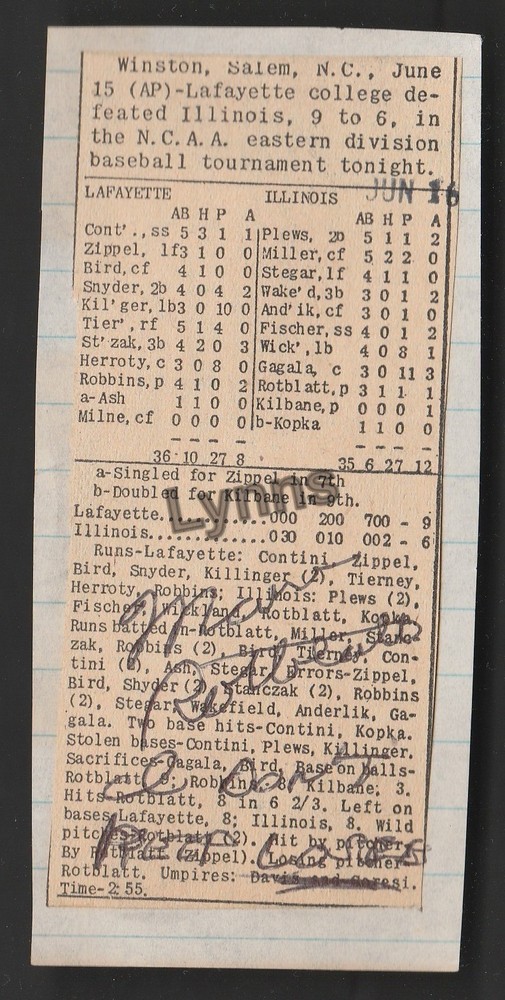 Winston, Salem, N.C., June
15 (AP)-Lafayette college de-
feated Illinois, 9 to 6, in
the N.C.A.A. eastern division
baseball tournament tonight.
JUN 16
LAFAYETTE ILLINOIS
AB H P A AB H P A
Cont'.,ss 5 3 1 1 Plews, 2b 5 1 1 2
Zippel, lf3 1 0 0 Miller,cf 5 2 2 0
Bird,cf 4 1 0 0 Stegar,lf 4 1 1 0
Snyder,2b 4 0 4 2 Wake'd,3b 3 0 1 2
Kil'ger,lb3 0 10 0 And'ik,cf 3 0 1 0
Tier',rf 5 1 4 0 Fischer,ss 4 0 1 2
St'zak,3b 4 2 0 3 Wick',lb 4 0 8 1
Herroty,c 3 0 8 0 Gagala, c 3 0 11 3
Robbins,p 4 1 0 2 Rotblatt,p 3 1 1 1
a-Ash 1 1 0 0 Kilbane,p 0 0 0 1
Milne,cf 0 0 0 0 b-Kopka 1 1 0 0
36 10 27 8 35 6 27 12
a-Singled for Zippel in 7th
b-Doubled for Kilbane in 9th.
Lynns
Lafayette............000 200 700 - 9
Illinois.............030 010 002 - 6
Runs-Lafayette: Contini, Zippel,
Bird, Snyder, Killinger (2), Tierney,
Herroty, Robbins; Illinois: Plews (2),
Fischer, Wickland, Rotblatt, Kopka.
Runs batted in-Rotblatt, Miller, Stanc-
zak, Robbins (2), Bird, Tierney, Con-
tini, Ash, Stegar, Errors-Zippel,
Bird, Snyder (2), Stanczak (2), Robbins
(2), Stegar, Wakefield, Anderlik, Ga-
gala. Two base hits-Contini, Kopka.
Stolen bases-Contini, Plews, Killinger.
Sacrifices-Gagala, Bird, Base on balls-
Rotblatt 8; Robbins, 8; Kilbane, 3.
Hits-Rotblatt, 8 in 6 2/3. Left on
bases-Lafayette, 8; Illinois, 8. Wild
pitches-Rotblatt (2). Hit by pitcher-
By Rotblatt (Zippel). Losing pitcher-
Rotblatt. Umpires: Davis and Coresi.
Time-2:55.
Marv
Rotblatt